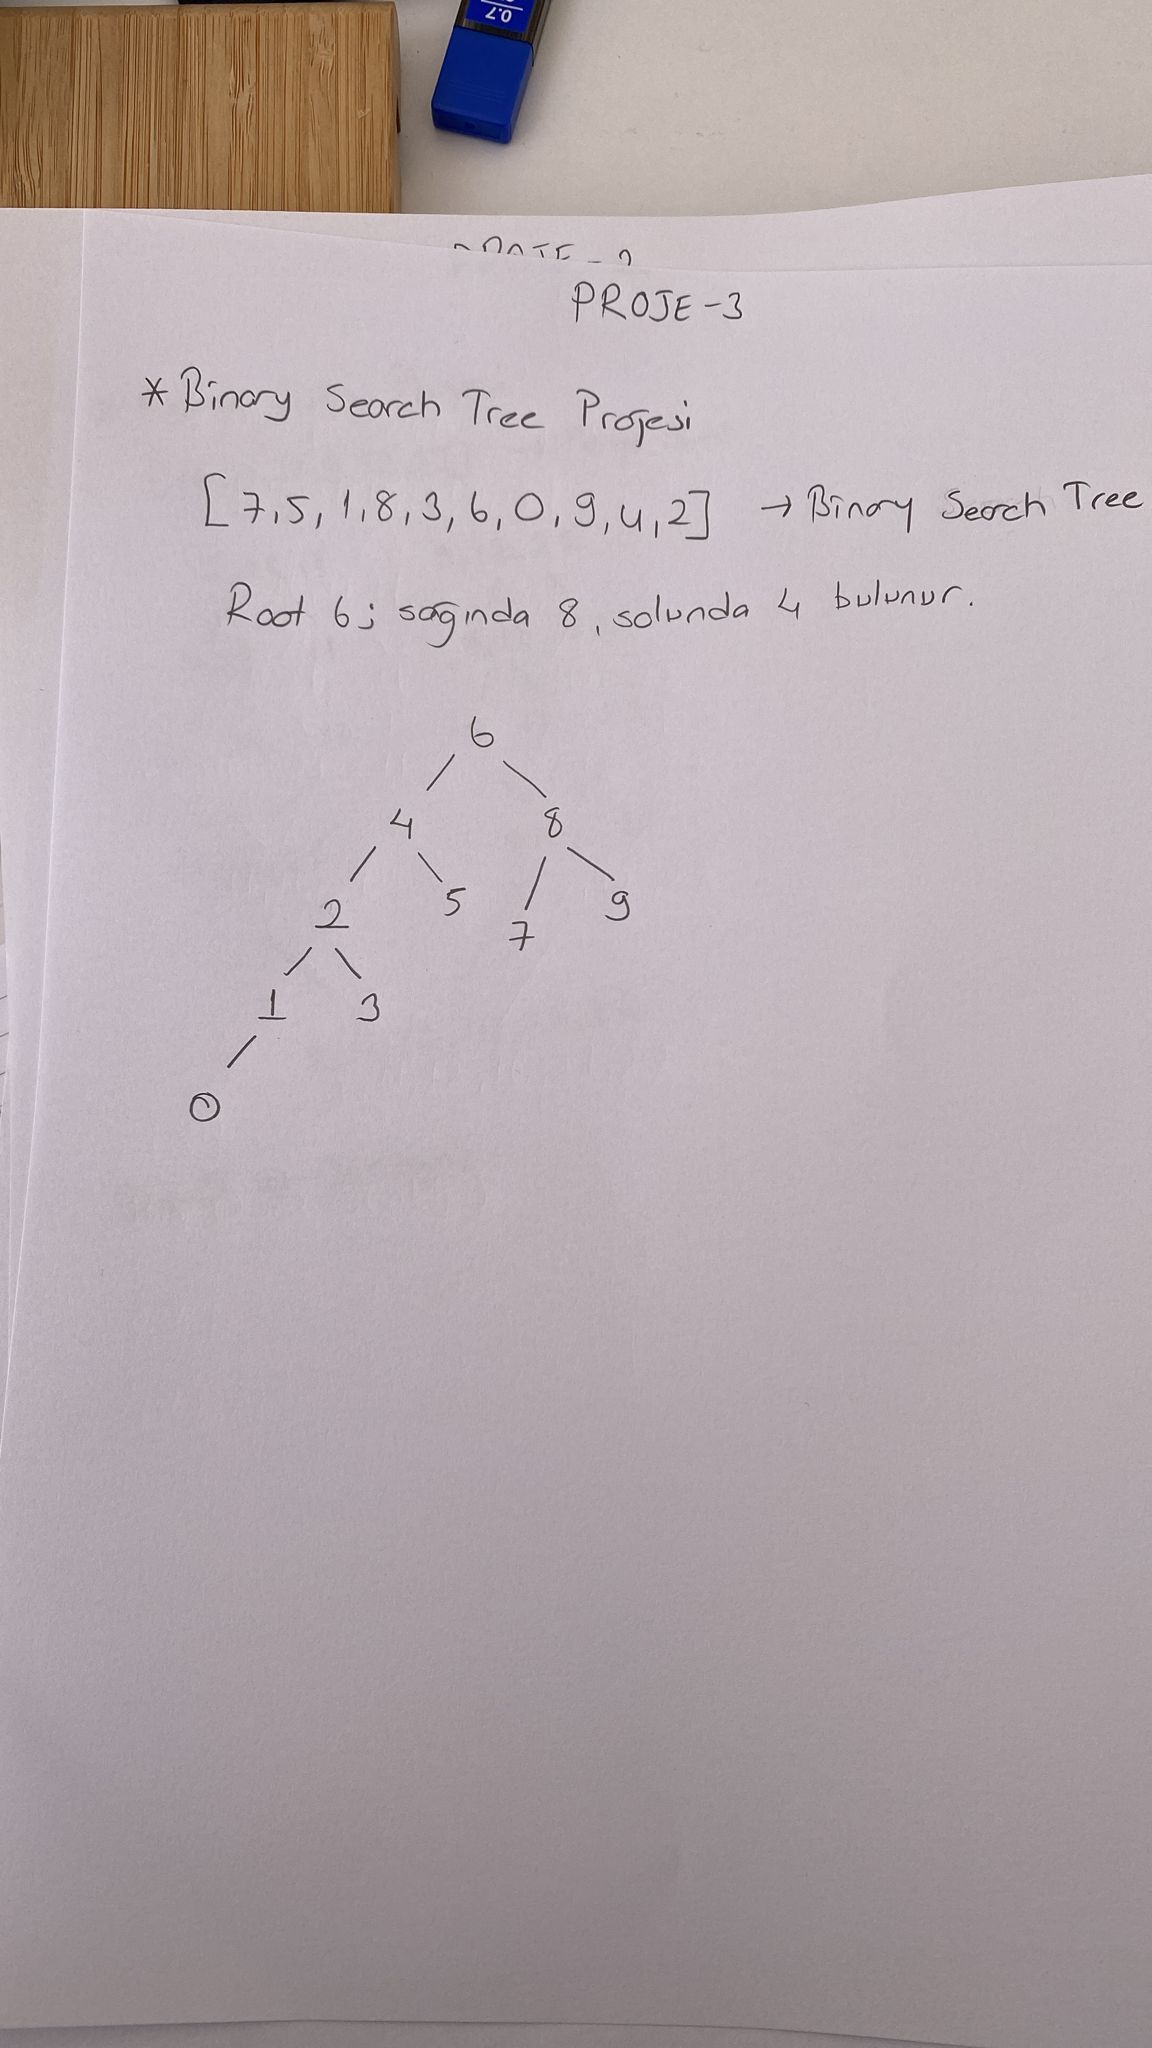 0.7
PROJE-3
* Binary Search Tree Projesi
[7,5,1,8,3,6,0,9,4,2] → Binary Search Tree
Root 6; sağında 8, solunda 4 bulunur.
6
4 8
2 5 7 9
1 3
0